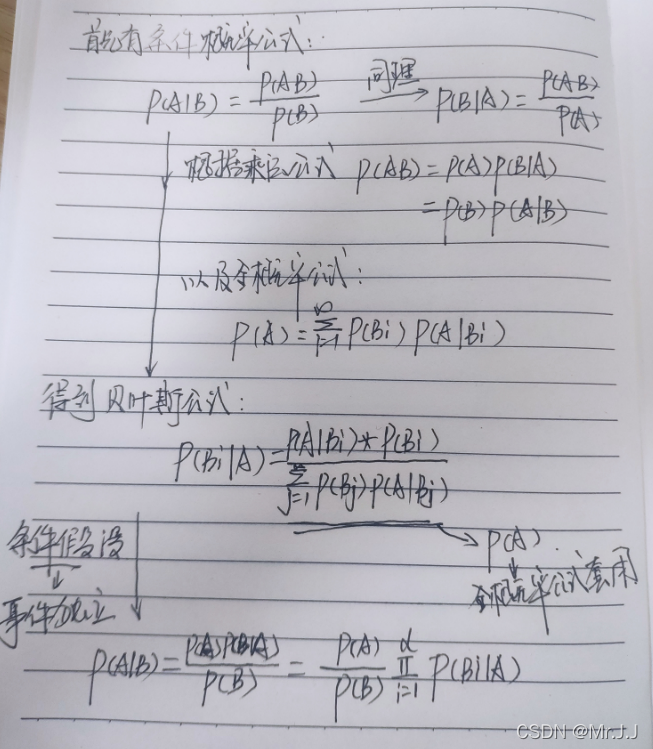 首先有条件概率公式:
P(A|B) = P(AB) / P(B) 同理 → P(B|A) = P(AB) / P(A)
根据乘法公式 P(AB) = P(A)P(B|A)
= P(B)P(A|B)
以及全概率公式:
P(A) = ∑ i=1 P(Bi) P(A|Bi)
得到贝叶斯公式:
P(Bi|A) = P(A|Bi) * P(Bi) / ∑ j=1 P(Bj) P(A|Bj)
→ P(A)
全概率公式套用
条件假设
事件独立
P(A|B) = P(A)P(B|A) / P(B) = P(A) / P(B) ∏ i=1 d P(Bi|A)
CSDN @Mr.J.J